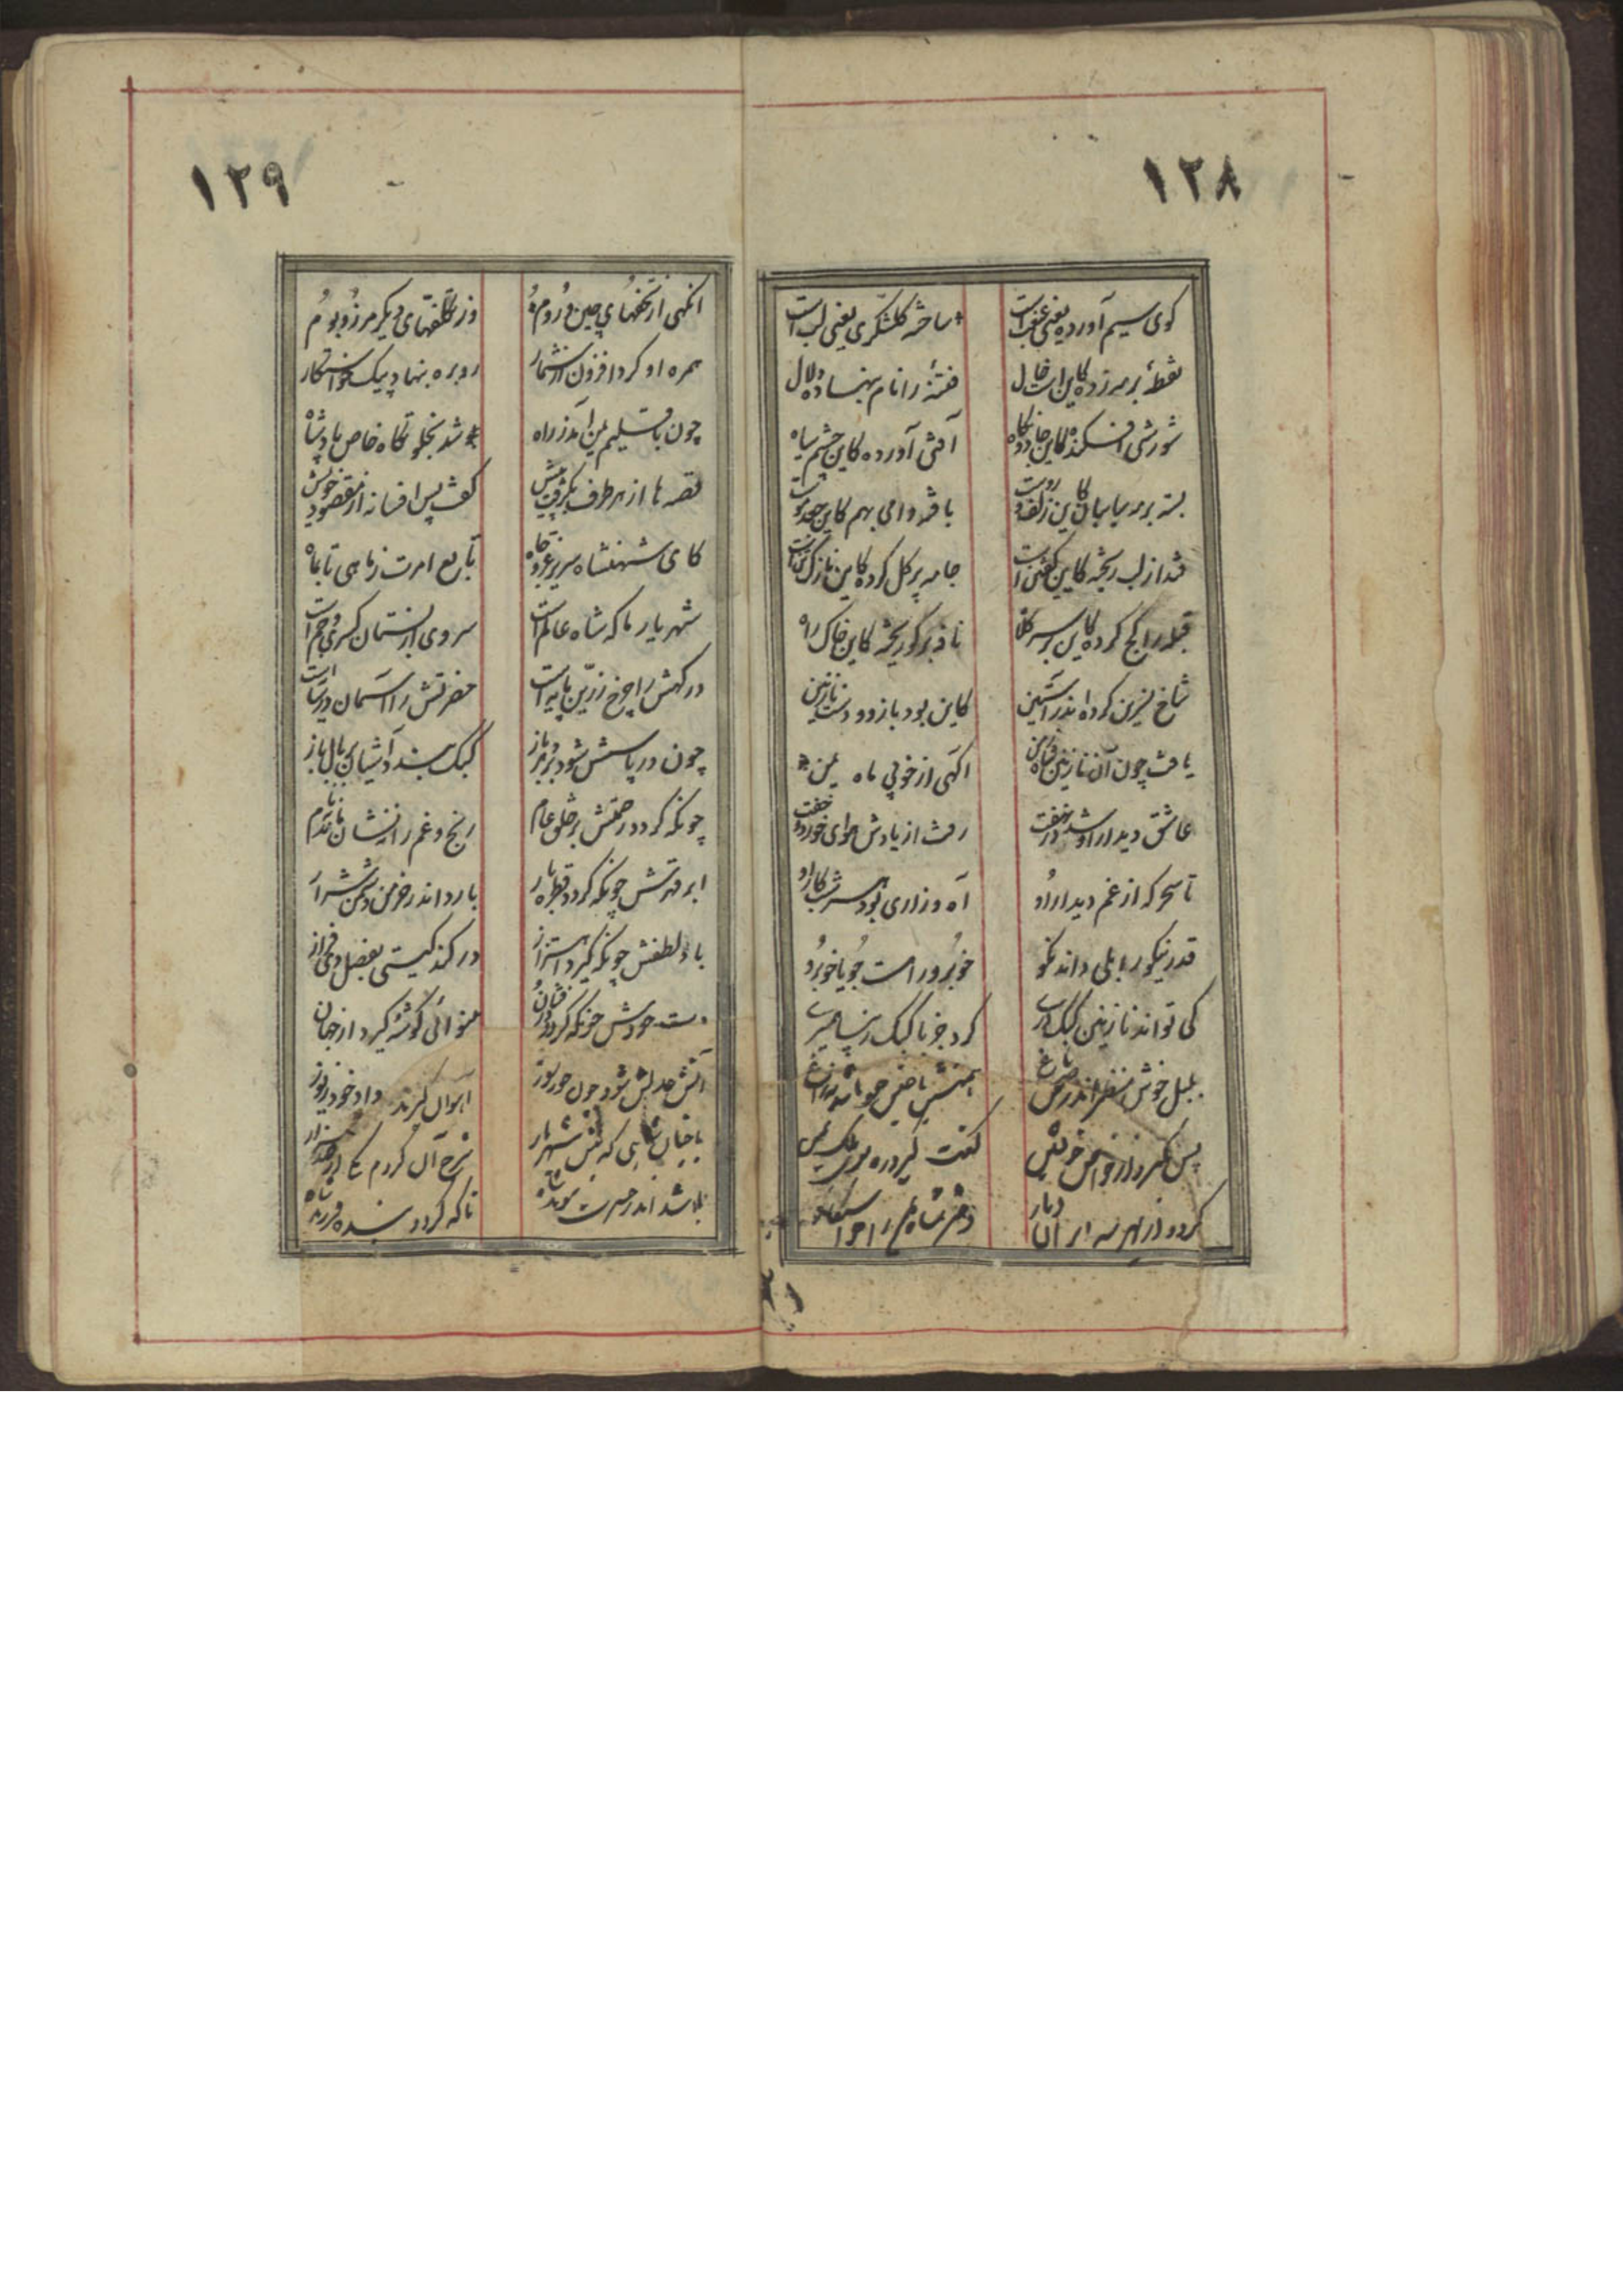 ۱۲۸
گوی سیم آورده یعنی غبغب است ساخته گلشکری یعنی لب است
نقطهٔ بر مه زده کاین است خال فتنهٔ را نام بنهاده دلال
شورشی افکنده کاین جادو نگاه آفتی آورده کاین چشم سیاه
بسته بر مه سایبان کاین زلف و روست بافته دامی بهم کاین جعد موست
قند از لب ریخته کاین گفتن است جامه پر گل کرده کاین نازک تن است
قبله را کج کرده کاین بر سر کلاه نافه بر گو ریخته کاین خاک راه
شاخ نسرین کرده اندر آستین کاین بود بازو و دست نازنین
یافت چون آن نازنین آگهی از خوبی ماه یمن
عاشق دیدار او شد در نهفت رفت از یادش هوای خورد و خفت
تا سحرگه از غم دیدار او آه و زاری بود هر شب کار او
قدر نیکو را بلی داند نکو خوبرو را هست جویا خوبرو
کی تواند نازنین کبک دری کرد جز با کبک
بلبل خوش منظر اندر صحن باغ همنشین
پس
گفت گیرد ره سوی ملک یمن
۱۲۹
آنگهی از تحفهای چین و روم وز تکلفهای دیگر مرز و بوم
همره او کرد افزون از شمار رو بره بنهاد پیک خواستگار
چون باقلیم یمن آمد ز راه شد بخلوتگاه خاص پادشاه
قصه ها از هر طرف بگرفت پیش گفت پس افسانه از مقصود خویش
کای شهنشاه سریر عز و جاه تابع امرت ز ماهی تا بماه
شهریار ما که شاه عالم است سروی از بستمان کسری و جم است
درگهش را چرخ زرین پایه است حضرتش را آسمان در سایه است
چون در پاسش شود بر باز کبک بندد آشیان بر بال باز
چونکه گردد رحمتش بر خلق عام رنج و غم را نشان
ابر قهرش چونکه گردد قطره بار بارد اندر خرمن دشمن شرار
باد لطفش چونکه گیرد اهتزاز در کند گیتی بفضل
دست جودش چونکه گردد زرفشان بینوائی گوشه گیرد از جهان
آتش عدلش شود چون آهوان گیرند داد خود ز یوز
با چنان شاهی که شهریار شرح آن کردم یکی از صد هزار
باشد اندر حسرت تا که گردد بنده فرزند شاه